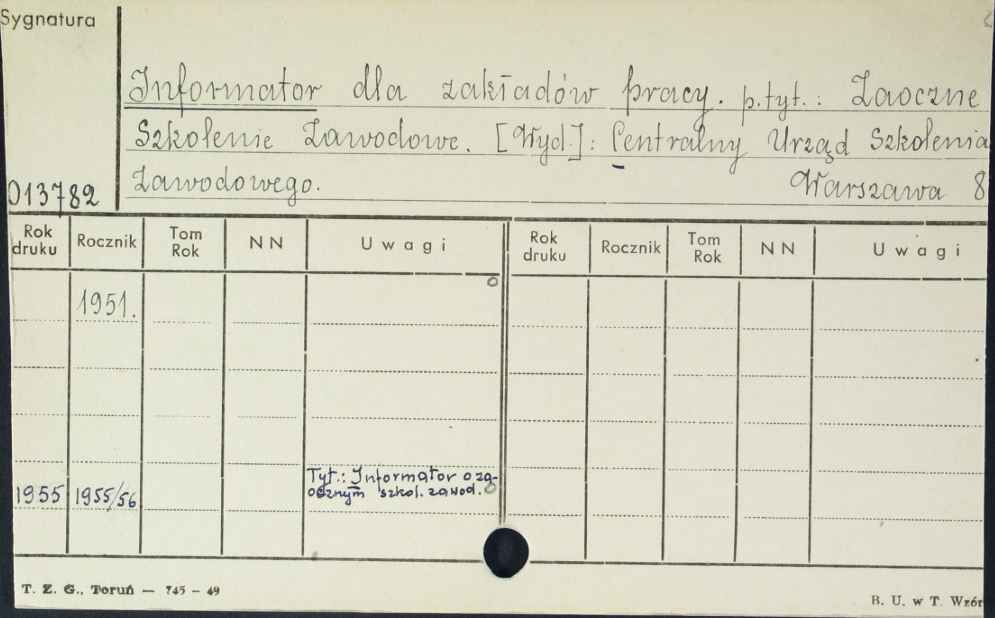 Sygnatura
Informator dla zakładów pracy. p.tyt.: Zaoczne
Szkolenie Zawodowe. [Wyd.]: Centralny Urząd Szkolenia
Zawodowego. Warszawa 8
013782
Rok druku Rocznik Tom Rok NN Uwagi Rok druku Rocznik Tom Rok NN Uwagi
1951.
Tyt.: Informator o za-
1955 1955/56 ocznym szkol. zawod.
T. Z. G., Toruń — 745 – 49
B. U. w T. Wzór